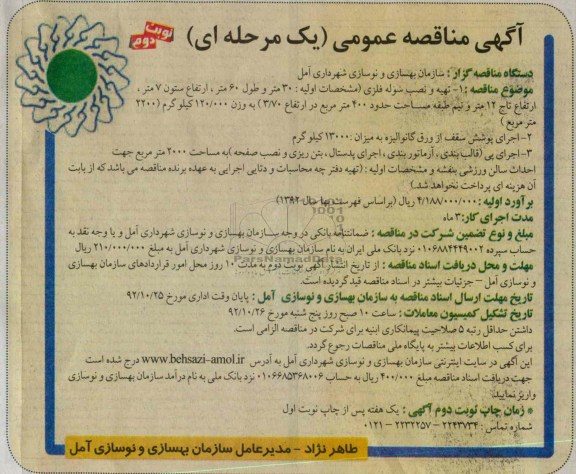 آگهی مناقصه عمومی (یک مرحله ای)
نوبت دوم
دستگاه مناقصه گزار : سازمان بهسازی و نوسازی شهرداری آمل
موضوع مناقصه : ۱- تهیه و نصب سوله فلزی (مشخصات اولیه : ۳۰ متر و طول ۶۰ متر ، ارتفاع ستون ۷ متر ،
ارتفاع تاج ۱۲ متر و نیم طبقه مساحت حدود ۴۰۰ متر مربع در ارتفاع ۳/۷۰) به وزن ۱۲۰/۰۰۰ کیلوگرم (۲۲۰۰
متر مربع)
۲- اجرای پوشش سقف از ورق گالوانیزه به میزان : ۱۳۰۰۰ کیلو گرم
۳- اجرای پی (قالب بندی ، آرماتور بندی ، اجرای پدستال ، بتن ریزی و نصب صفحه) به مساحت ۲۰۰۰ متر مربع جهت
احداث سالن ورزشی بنفشه و مشخصات اولیه : (تهیه دفتر چه محاسبات و دتایی اجرایی به عهده برنده مناقصه می باشد که از بابت
آن هزینه ای پرداخت نخواهد شد.)
برآورد اولیه : ۴/۱۸۸/۰۰۰/۰۰۰ ریال (براساس فهرست بها سال ۱۳۹۲)
مدت اجرای کار: ۳ ماه
مبلغ و نوع تضمین شرکت در مناقصه : ضمانتنامه بانکی در وجه سازمان بهسازی و نوسازی شهرداری آمل و یا وجه نقد به
حساب سپرده ۰۱۰۶۸۸۴۴۴۹۰۰۲ نزد بانک ملی ایران به نام سازمان بهسازی و نوسازی شهرداری آمل به مبلغ ۲۱۰/۰۰۰/۰۰۰ ریال
مهلت و محل دریافت اسناد مناقصه : از تاریخ انتشار آگهی نوبت دوم به مدت ۱۰ روز محل امور قراردادهای سازمان بهسازی
و نوسازی آمل – جزئیات بیشتر در اسناد مناقصه قید گردیده است.
تاریخ مهلت ارسال اسناد مناقصه به سازمان بهسازی و نوسازی آمل : پایان وقت اداری مورخ ۹۲/۱۰/۲۵
تاریخ تشکیل کمیسیون معاملات : ساعت ۱۰ صبح روز پنج شنبه مورخ ۹۲/۱۰/۲۶
داشتن حداقل رتبه ۵ صلاحیت پیمانکاری ابنیه برای شرکت در مناقصه الزامی است.
برای کسب اطلاعات بیشتر به پایگاه ملی مناقصات رجوع گردد.
این آگهی در سایت اینترنتی سازمان بهسازی و نوسازی شهرداری آمل به آدرس www.behsazi-amol.ir درج شده است
جهت دریافت اسناد مناقصه مبلغ ۴۰۰/۰۰۰ ریال به حساب ۰۱۰۶۶۸۵۳۶۸۰۰۶ نزد بانک ملی به نام درآمد سازمان بهسازی و نوسازی
واریز نمایید.
* زمان چاپ نوبت دوم آگهی : یک هفته پس از چاپ نوبت اول
شماره تماس : ۲۲۴۳۷۳۴ – ۲۲۳۲۲۵۷ – ۰۱۲۱
طاهر نژاد - مدیرعامل سازمان بهسازی و نوسازی آمل
ParsNamadData